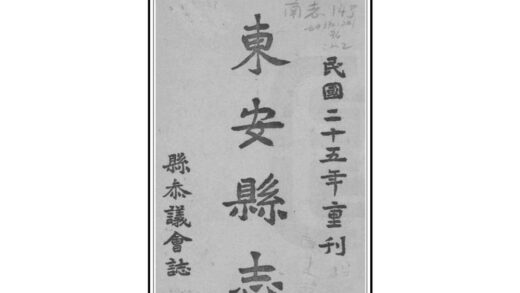 民國二十五年重刊
東安縣志
縣叅議會誌